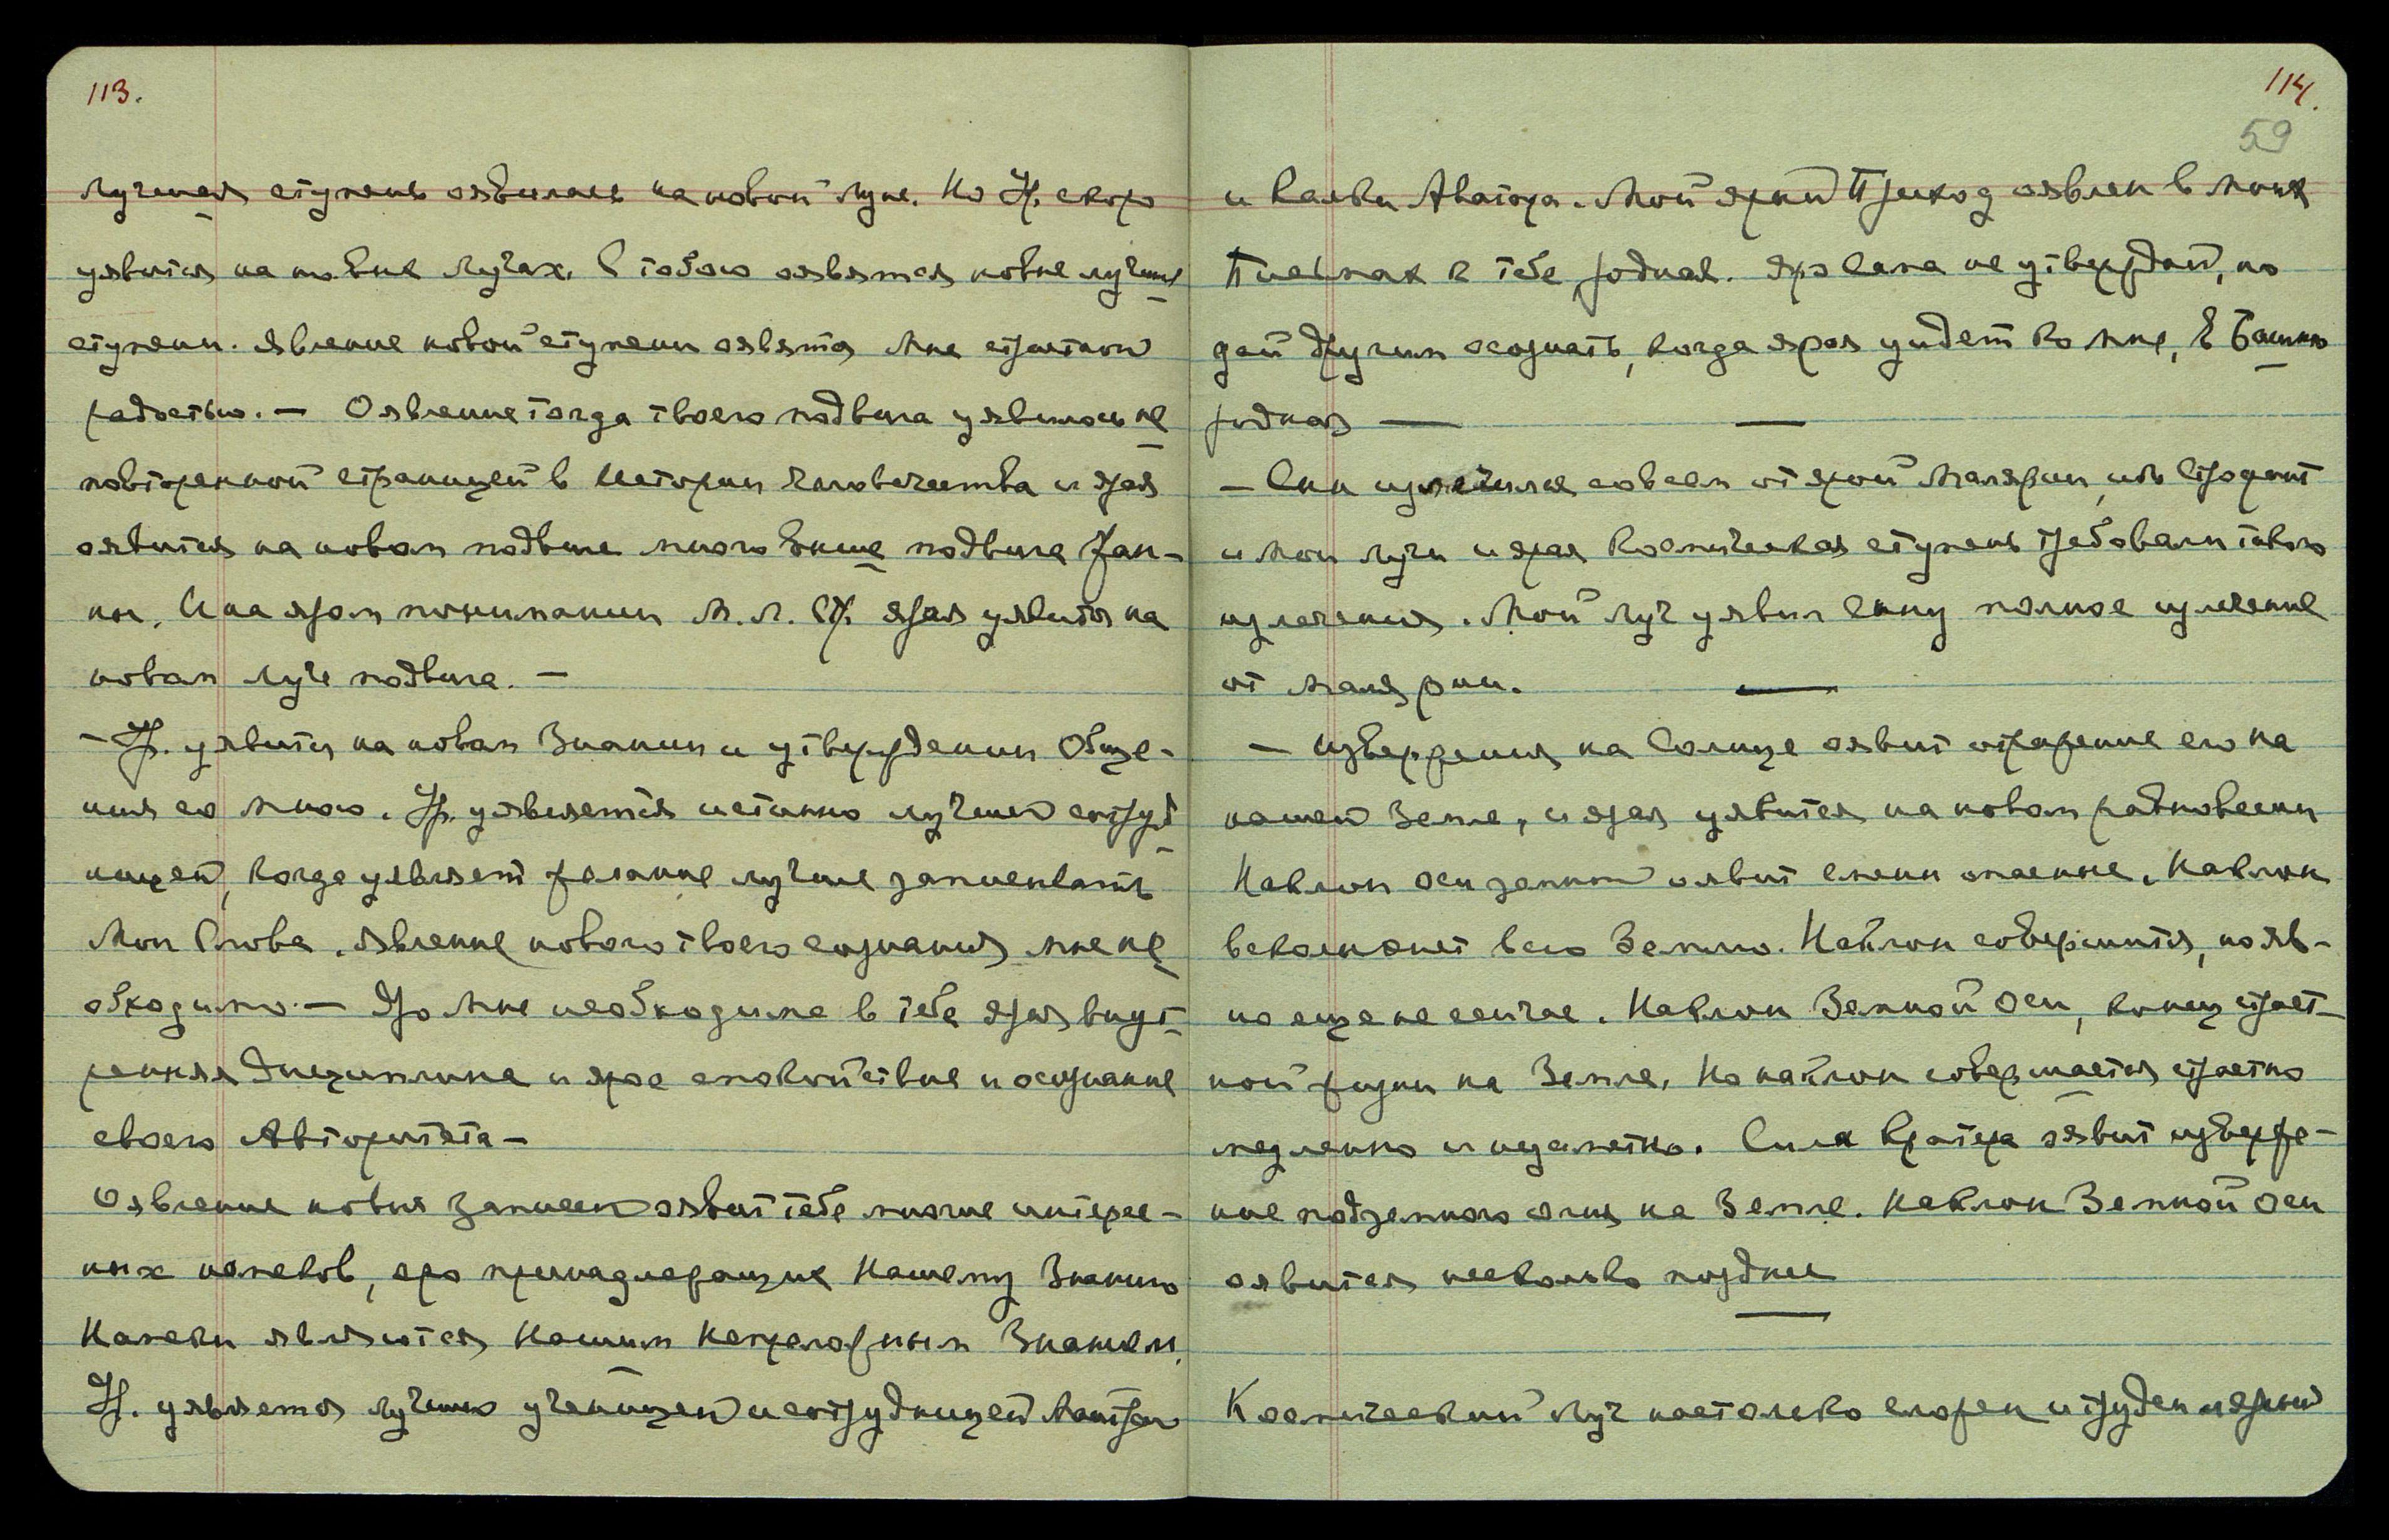 113.
лучшая ступень оявилась на новой Луне. Но Ур. скоро
уявится на новые Лучах, с тобою оявятся новые лучшие
ступени. Явление новой ступени оявятся Мне страстной
радостью. — Оявление тогда твоего подвига уявилось не
повторенной страницей в Истории Человечества и ярая
оявится на новом подвиге много выше подвига Жан-
ны. И на яром понимании М. Л. Ур. ярая уявится на
новом луче подвига. —
— Ур. уявится на новом Знании и утверждении Обще-
ния со мною. Ур. уявляется истинно лучшей сотруд
ницей, когда уявляет желание лучше записывать
Мои Слова. Явление нового твоего сознания мне не
обходимо. — Яро Мне необходима в тебе ярая внут-
ренняя дисциплина и ярое спокойствие и осознание
своего Авторитета —
Оявление новых записей оявит тебе многие интерес-
ных намеков, яро принадлежащие Нашему Знанию
Намеки являются Нашим Непреложным Знанием.
Ур. уявляется лучшею ученицей и сотрудницей Матрейи
114.
59
и Калки Аватара. Мой ярый Приход оявлен в моих
Письмах к тебе, родная. Яро Сама не утверждай, но
дай другим осознать, когда ярая уйдет ко мне, в Башню
родная — —
— Син излечился совсем от ярой малярии, ибо Строфант
и мои лучи и ярая Космическая ступень требовали такого
излечения. Мой Луч уявил Сину полное излечение
от малярии. —
— Извержения на Солнце оявит отражение его на
нашей Земле, и ярая уявится на новом равновесии
Наклон оси земной оявит смены опасные. Наклон
всколыхнет всю Землю. Наклон совершится, но яв-
но еще не сейчас. Наклон Земной Оси, конец страст-
ной жизни на Земле. Но наклон совершается страстно
медленно и незаметно. Сила Кратера оявит изверже-
ние подземного огня на Земле. Наклон Земной Оси
оявится несколько позднее
—
Космический Луч настолько сложен и труден и ярый